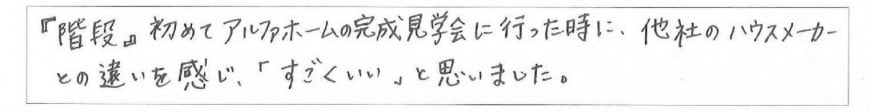 『階段』初めてアルファホームの完成見学会に行った時に、他社のハウスメーカー
との違いを感じ、「すごくいい」と思いました。